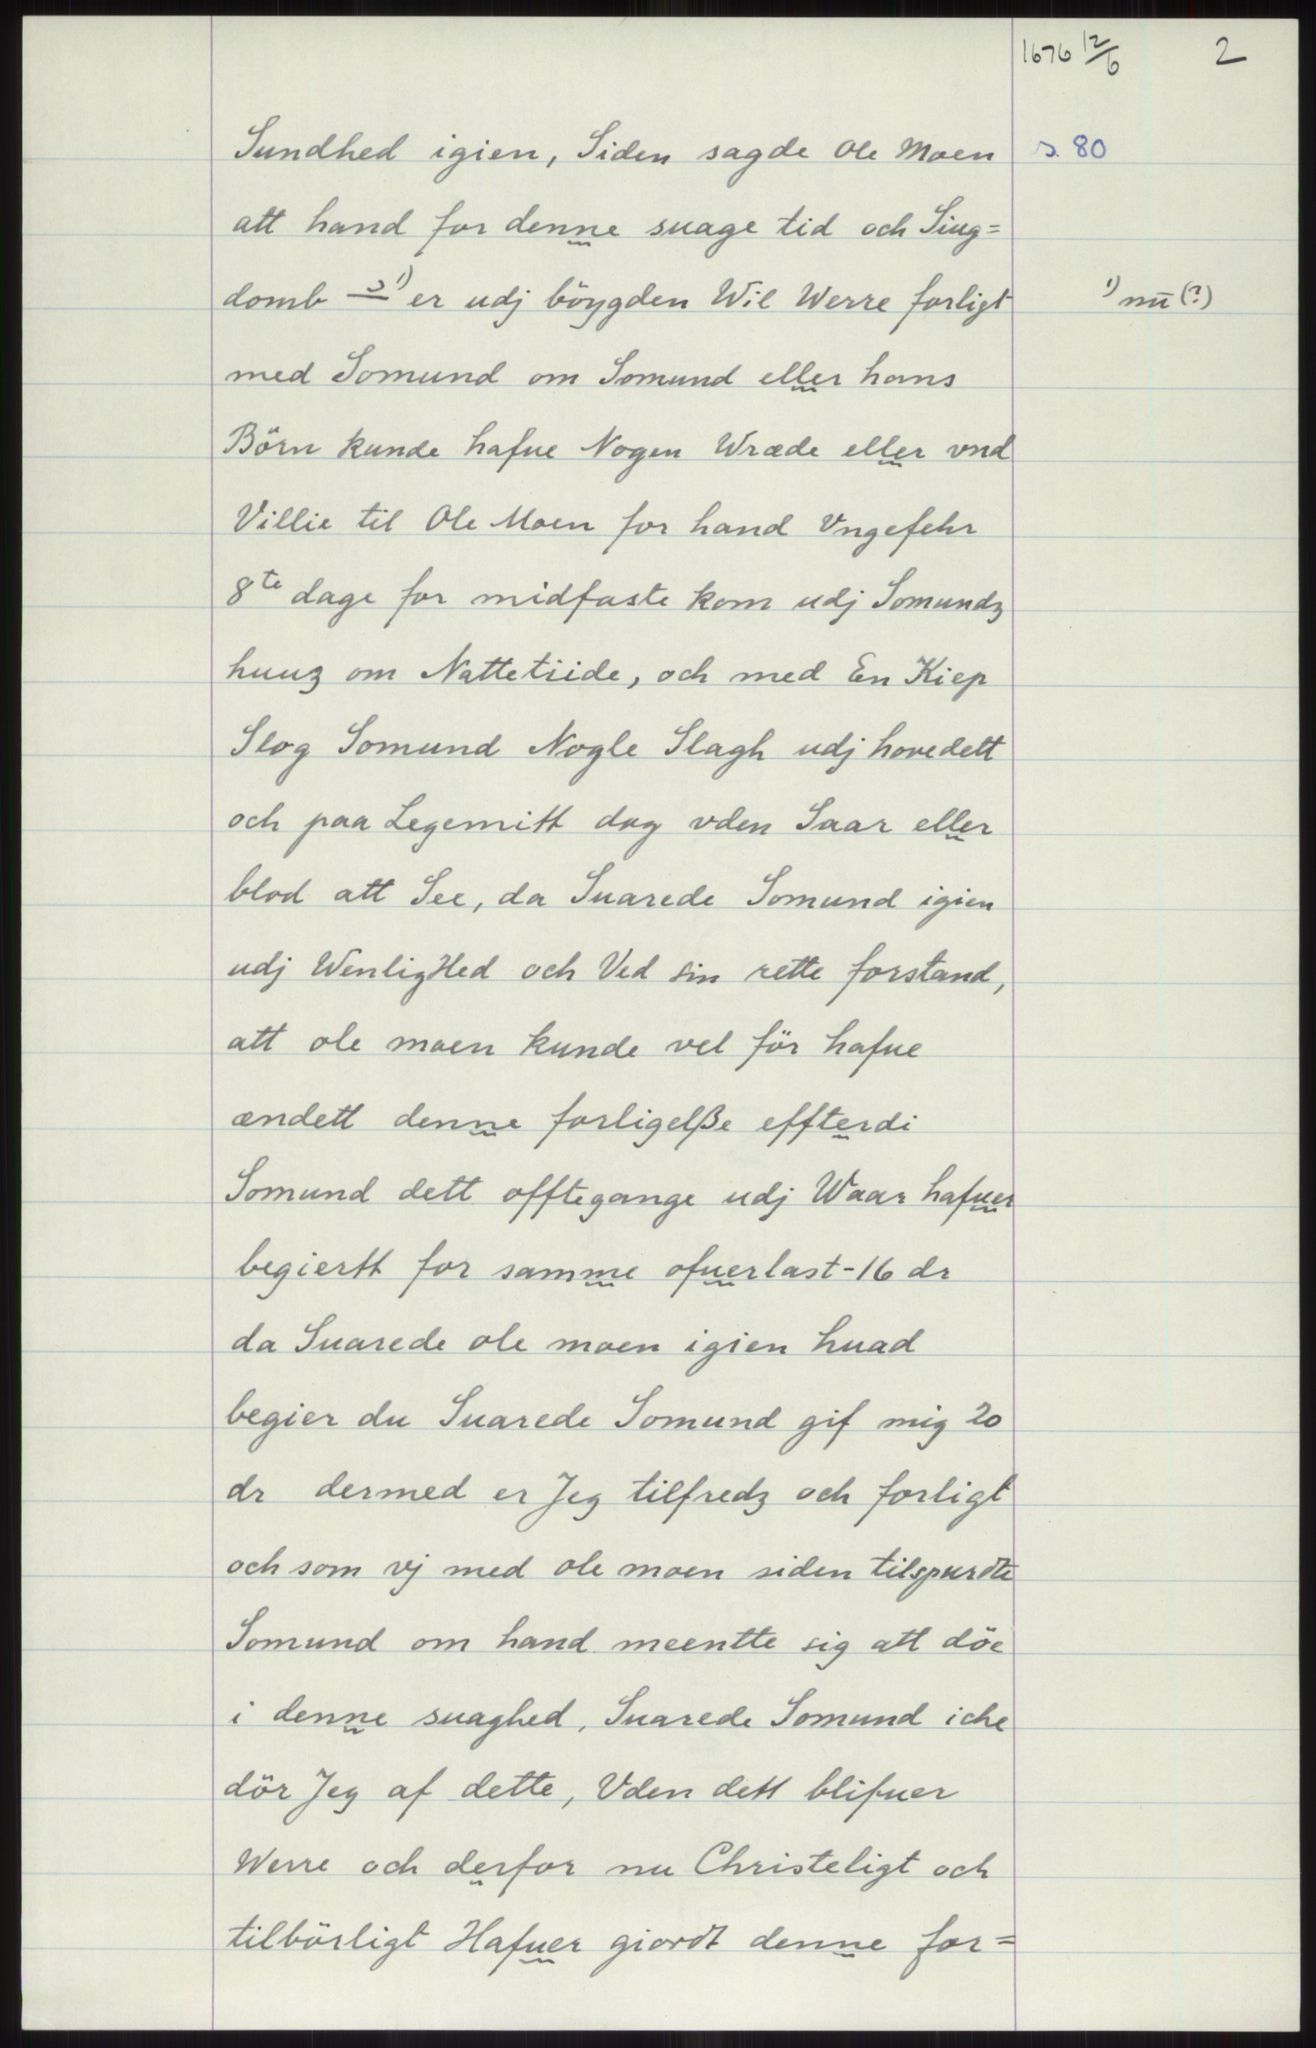 1676 12/6
2
Sundhed igien, Siden sagde Ole Moen
s. 80
att hand for denne suage tid och Siug=
domb — ¹) er udj böygden Wil Werre forligt
¹) nū (?)
med Somund om Somund eller hans
Börn kunde hafue Nogen Wræde eller vnd
Villie til Ole Moen for hand Vngefehr
8te dage for midfaste kom udj Somundz
huuz om Nattetiide, och med En Kiep
Slog Somund Nogle Slagh udj hovedett
och paa Legemitt dog vden Saar eller
blod att See, da Suarede Somund igien
udj WenligHed och Ved sin rette forstand,
att ole moen kunde vel för hafue
ændett denne forligelße effterdi
Somund dett offtegange udj Waar hafuer
begiertt for samme ofuerlast-16 dr
da Suarede ole moen igien huad
begier du Suarede Somund gif mig 20
dr dermed er Jeg tilfredz och forligt
och som vj med ole moen siden tilspurdte
Somund om hand meentte sig att döe
i denne suaghed, Suarede Somund iche
dör Jeg af dette, Vden dett blifuer
Werre och derfor nu Christeligt och
tilbörligt Hafuer giordt denne for=